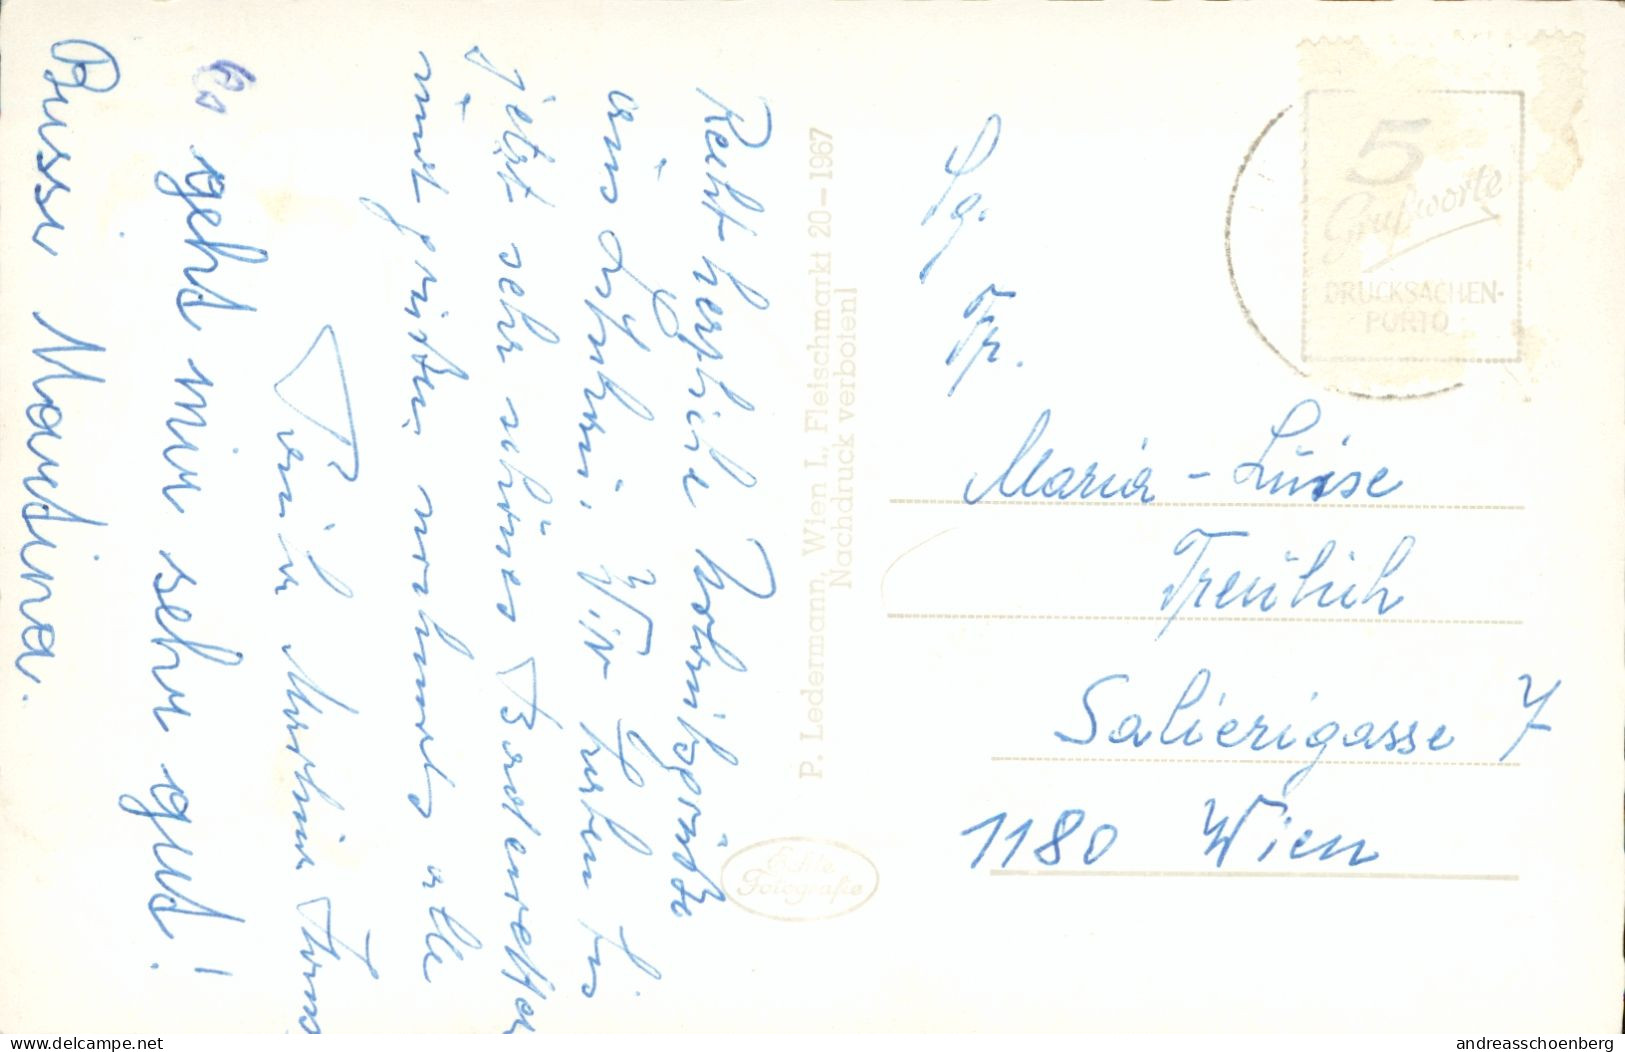 Recht herzliche Urlaubsgrüße
aus . Wir haben bis
jetzt sehr schönes Badewetter
und grüßen nochmals alle
Martina
Es gehd mir sehr gud!
Bussi Mardina.
P. Ledermann, Wien I., Fleischmarkt 20-1967
Nachdruck verboten!
Echte
Fotografie
5
Grußworte
DRUCKSACHEN-
PORTO
Sg.
Fr.
Maria-Luise
Treulich
Salierigasse 7
1180 Wien
www.delcampe.net
andreasschoenberg